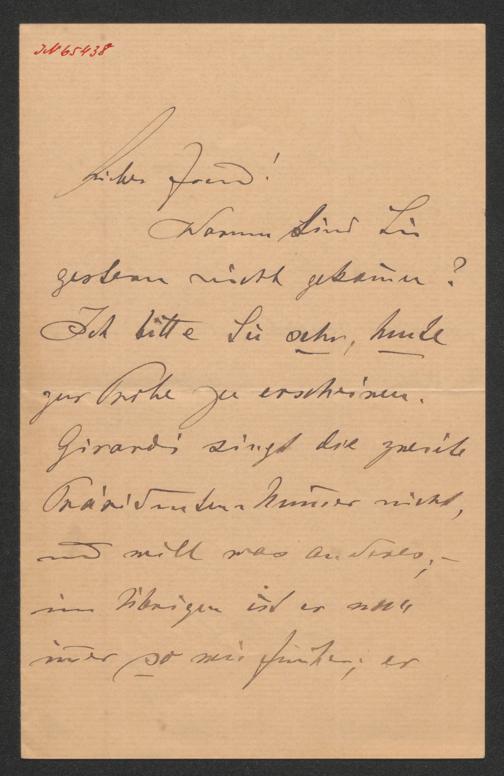 IN 65438
Lieber Freund!
Warum sind Sie
gestern nicht gekom̅en?
Ich bitte Sie sehr, heute
zur Probe zu erscheinen.
Girardi singt die zweite
Präsidenten-Num̅er nicht,
und will was anderes; –
im Übrigen ist er noch
im̅er so wie früher; er